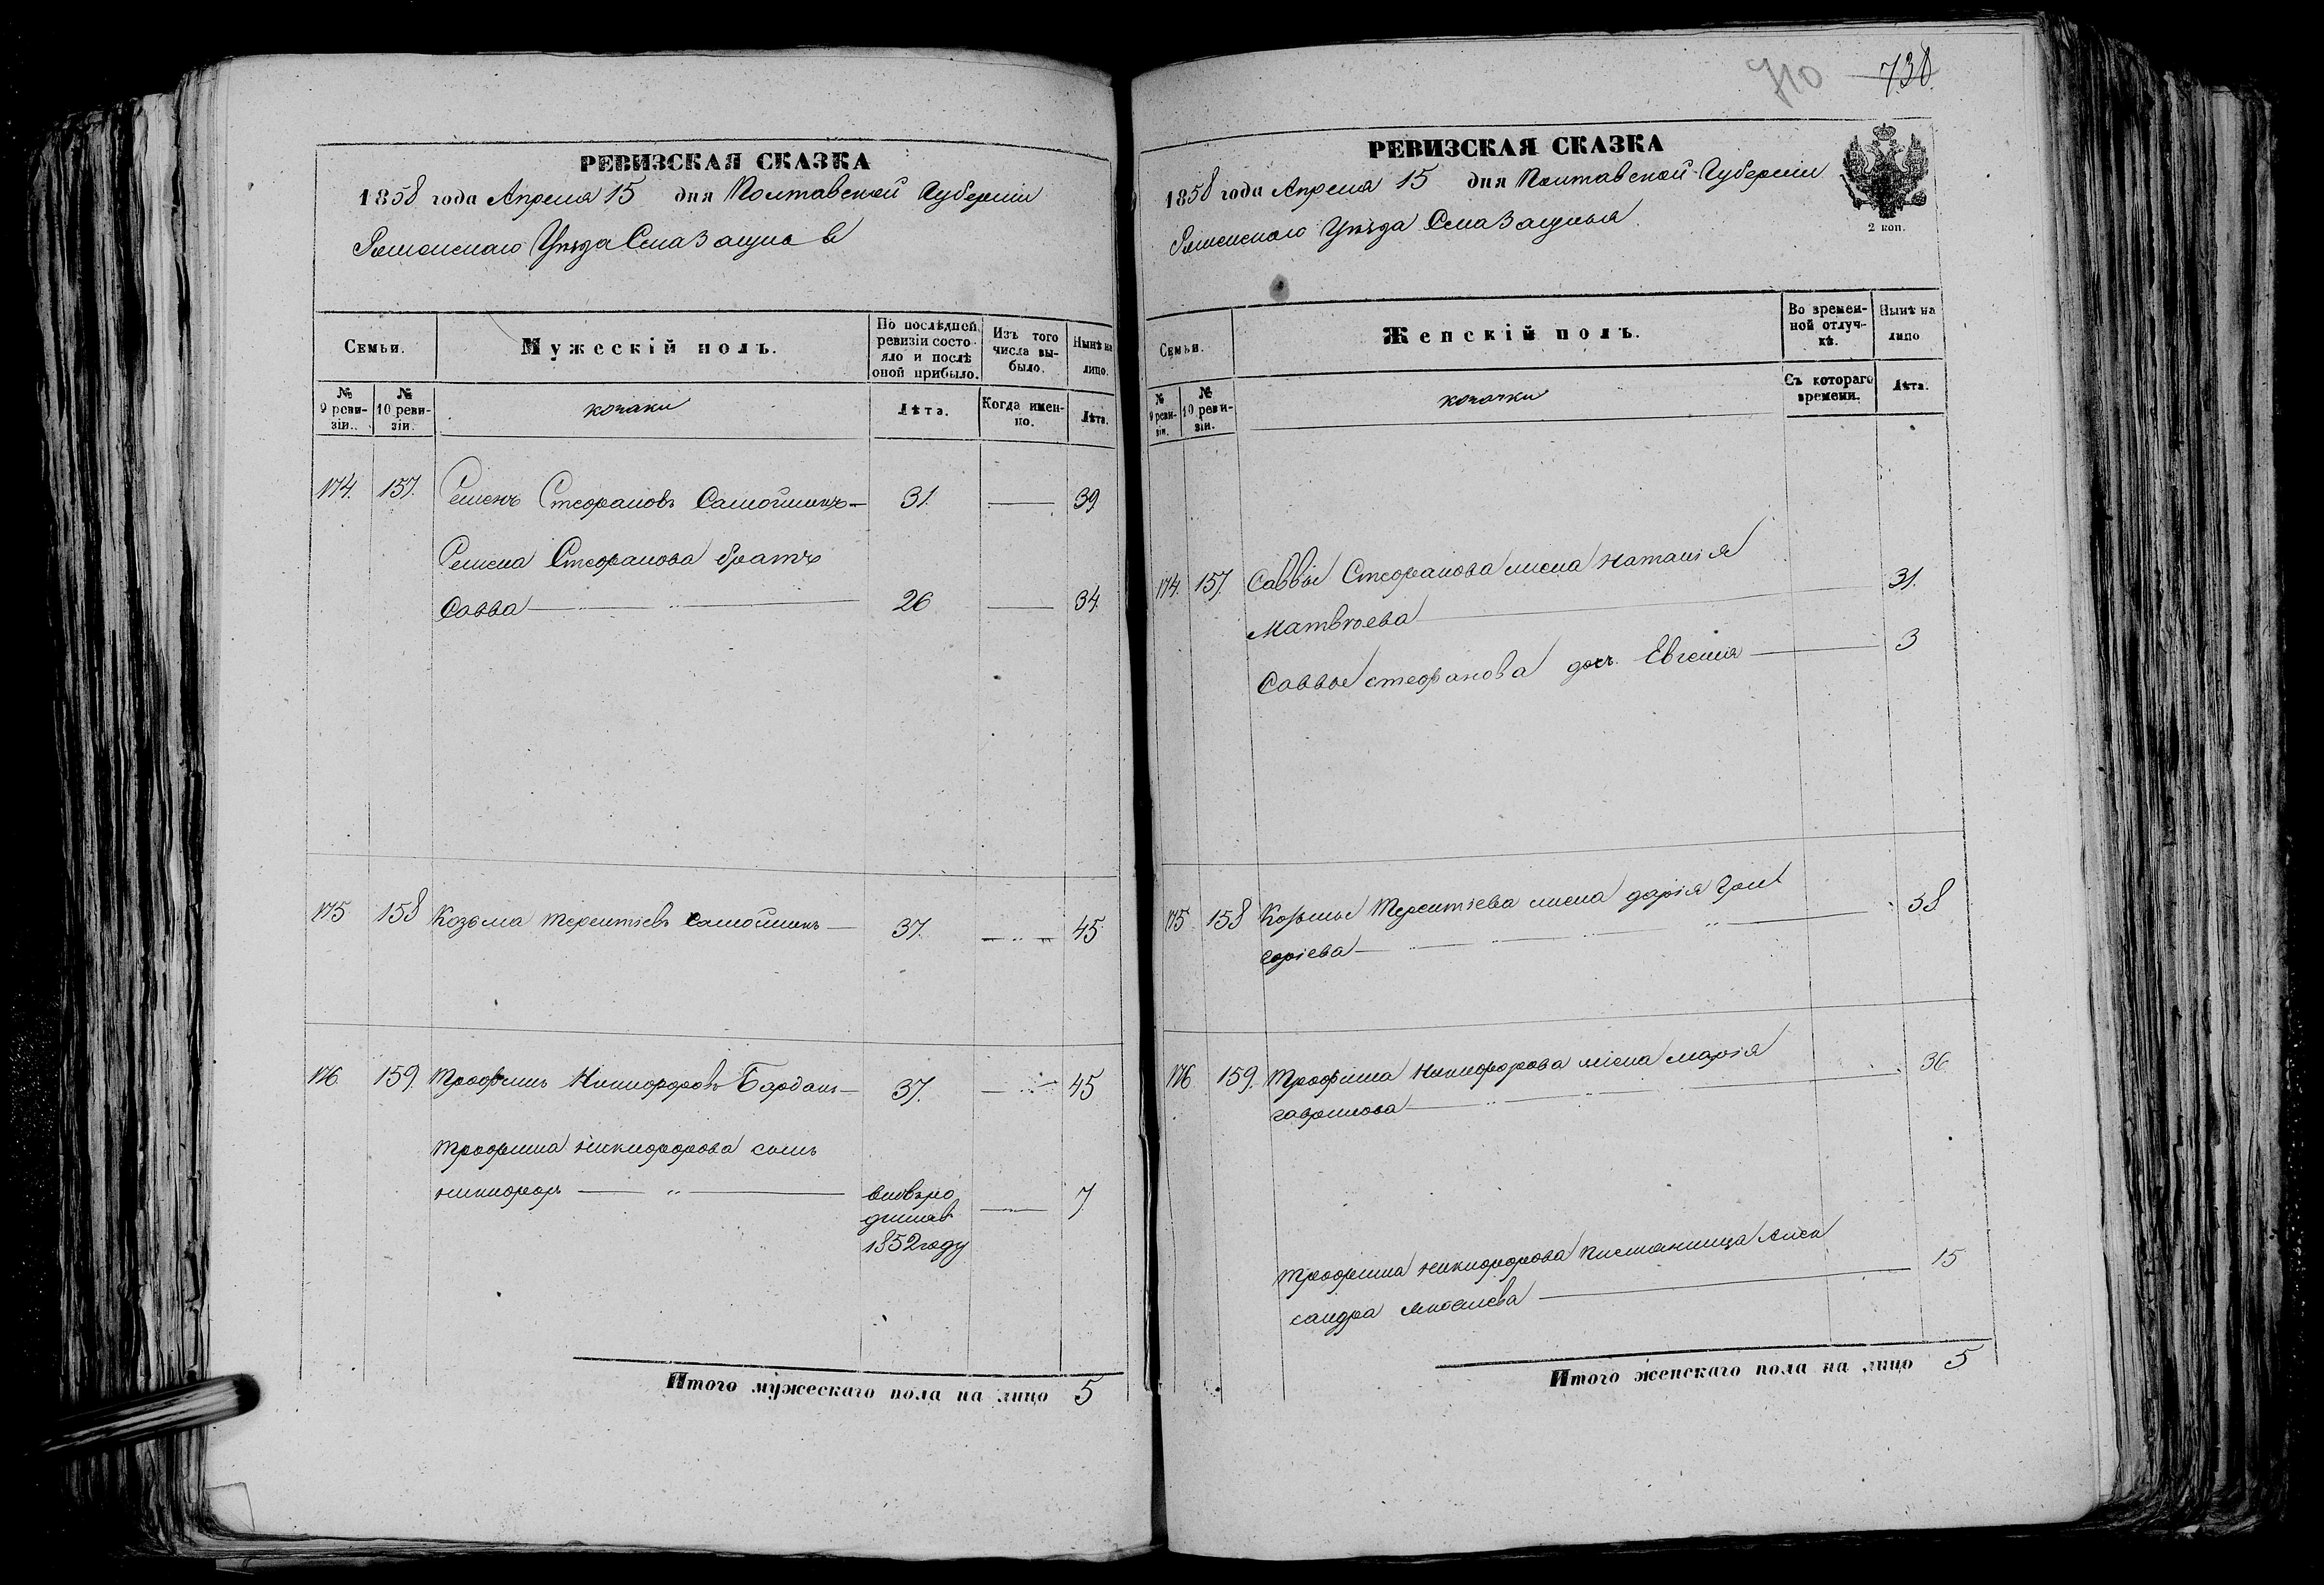 РЕВИЗСКАЯ СКАЗКА
1858 года Апреля 15 дня Полтавской Губерніи
Роменскаго Уѣзда
Семьи.
Мужескій полъ.
По послѣдней ревизіи состояло и послѣ оной прибыло.
Изъ того числа выбыло.
Нынѣ на лицо.
№ 9 ревизіи.
№ 10 ревизіи.
козаки
Лѣта.
Когда именно.
Лѣта.
174. 157. Стефановъ Самойленко 31. 39
Стефанова братъ
Савва 26 34.
175 158 Козьма Терентіевъ Самойленко 37. 45
176 159. Трофимъ Никифоровъ 37. 45
Трофима Никифорова сынъ
Никифоръ 7
1852 году
Итого мужескаго пола на лицо 5
710 738.
РЕВИЗСКАЯ СКАЗКА
1858 года Апреля 15 дня Полтавской Губерніи
Роменскаго Уѣзда
2 коп.
Семьи.
Женскій полъ.
Во временной отлучкѣ.
Нынѣ на лицо
№ 9 ревизіи.
№ 10 ревизіи.
козачки
Съ котораго времени.
Лѣта.
174. 157. Саввы Стефанова жена Наталія
Матвѣева 31.
Саввы Стефанова дочь Евгенія 3
175 158 Козьмы Терентіева жена Дарія Григ
оріева 38
176 159. Трофима Никифорова жена Марія
Гаврилова 36.
Трофима Никифорова племянница Алек
сандра 15
Итого женскаго пола на лицо 5